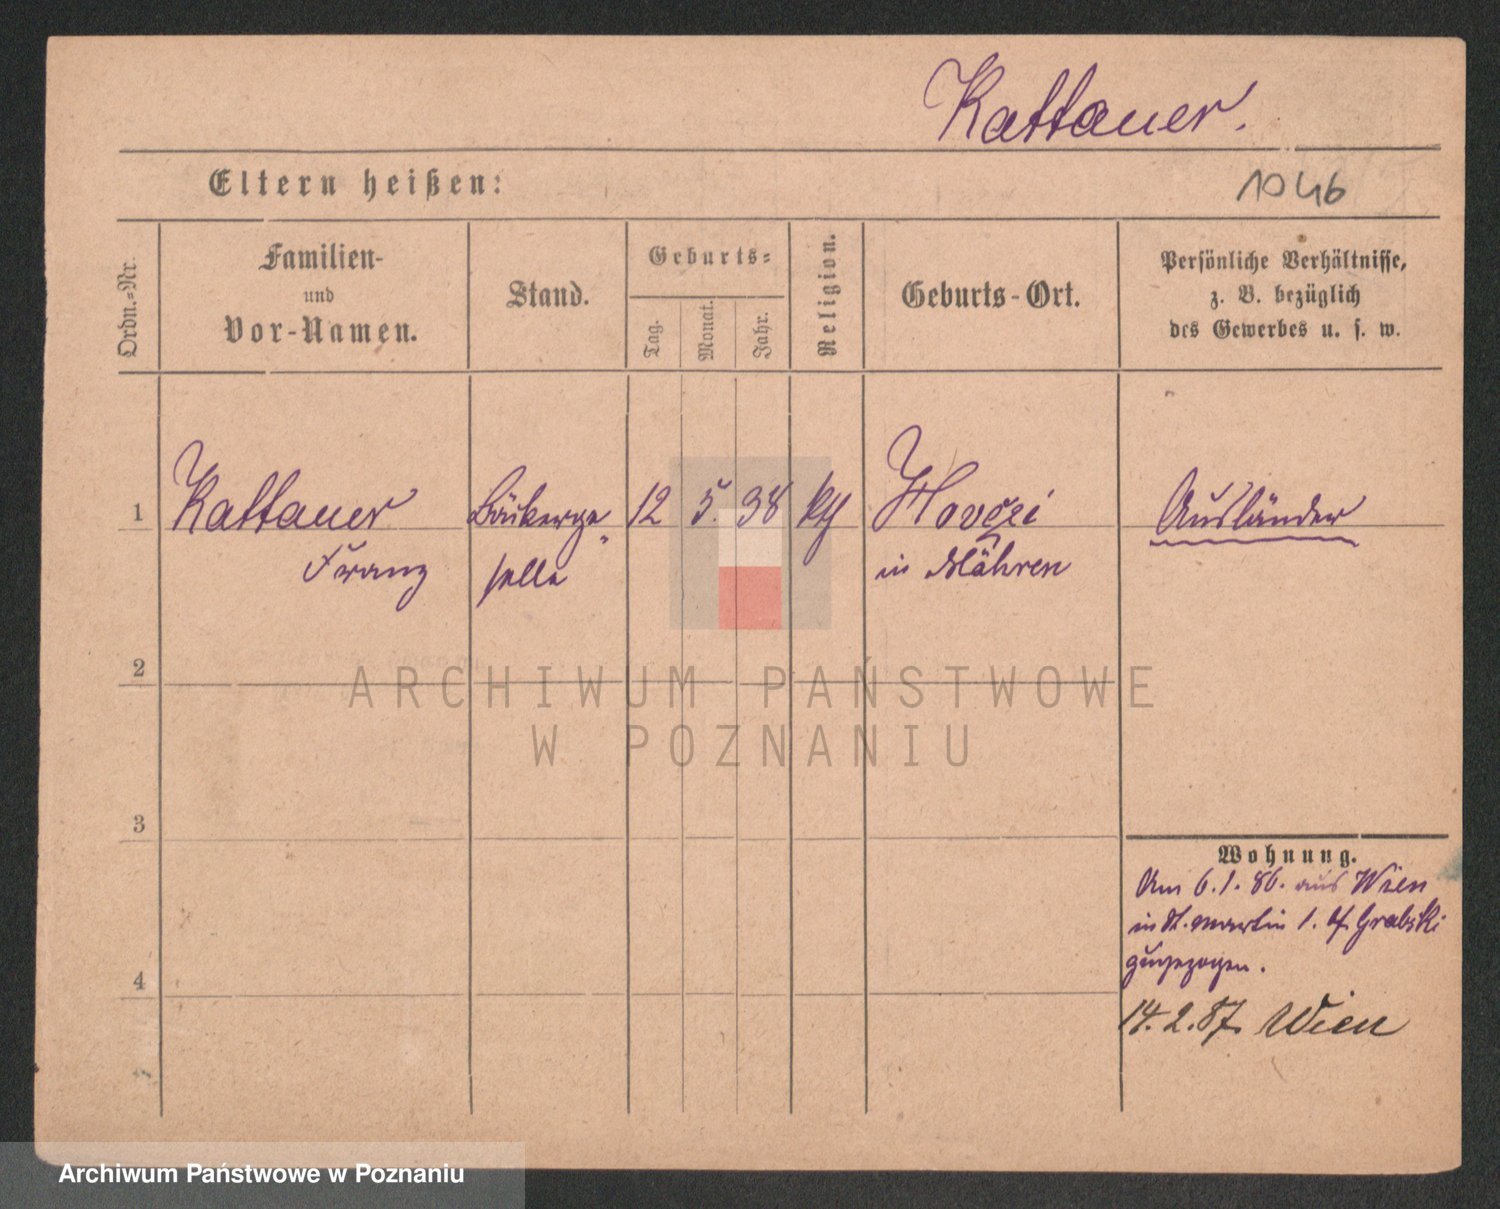 Kattauer.
Eltern heißen:
1046
Ordn.-Nr.
Familien-
und
Vor-Namen.
Stand.
Geburts-
Tag.
Monat.
Jahr.
Religion.
Geburts-Ort.
Persönliche Verhältnisse,
z. B. bezüglich
des Gewerbes u. s. w.
1
Kattauer
Franz
selle
12
5.
38
kth
in Mähren
Ausländer
2
ARCHIWUM PAŃSTWOWE
W POZNANIU
3
4
Wohnung.
Am 6.1.86. aus Wien
in St. Martin 1. Grabski
zugezogen.
14.2.87. Wien
Archiwum Państwowe w Poznaniu